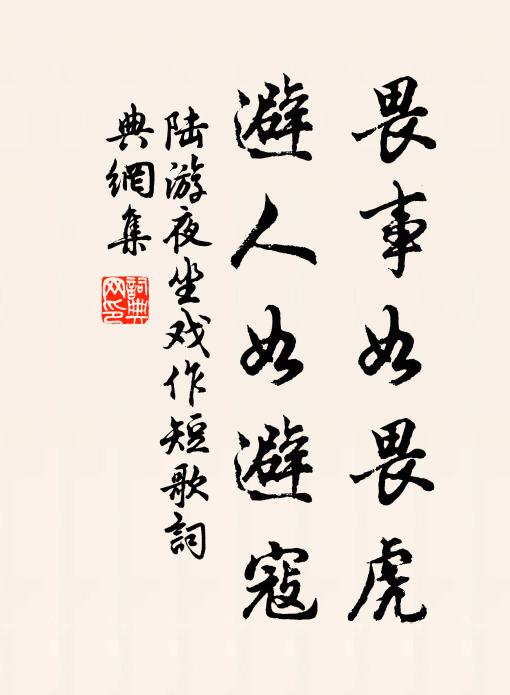 畏事如畏虎
避人如避寇
陆游夜坐戏作短歌詞
典網集
詞典
网印